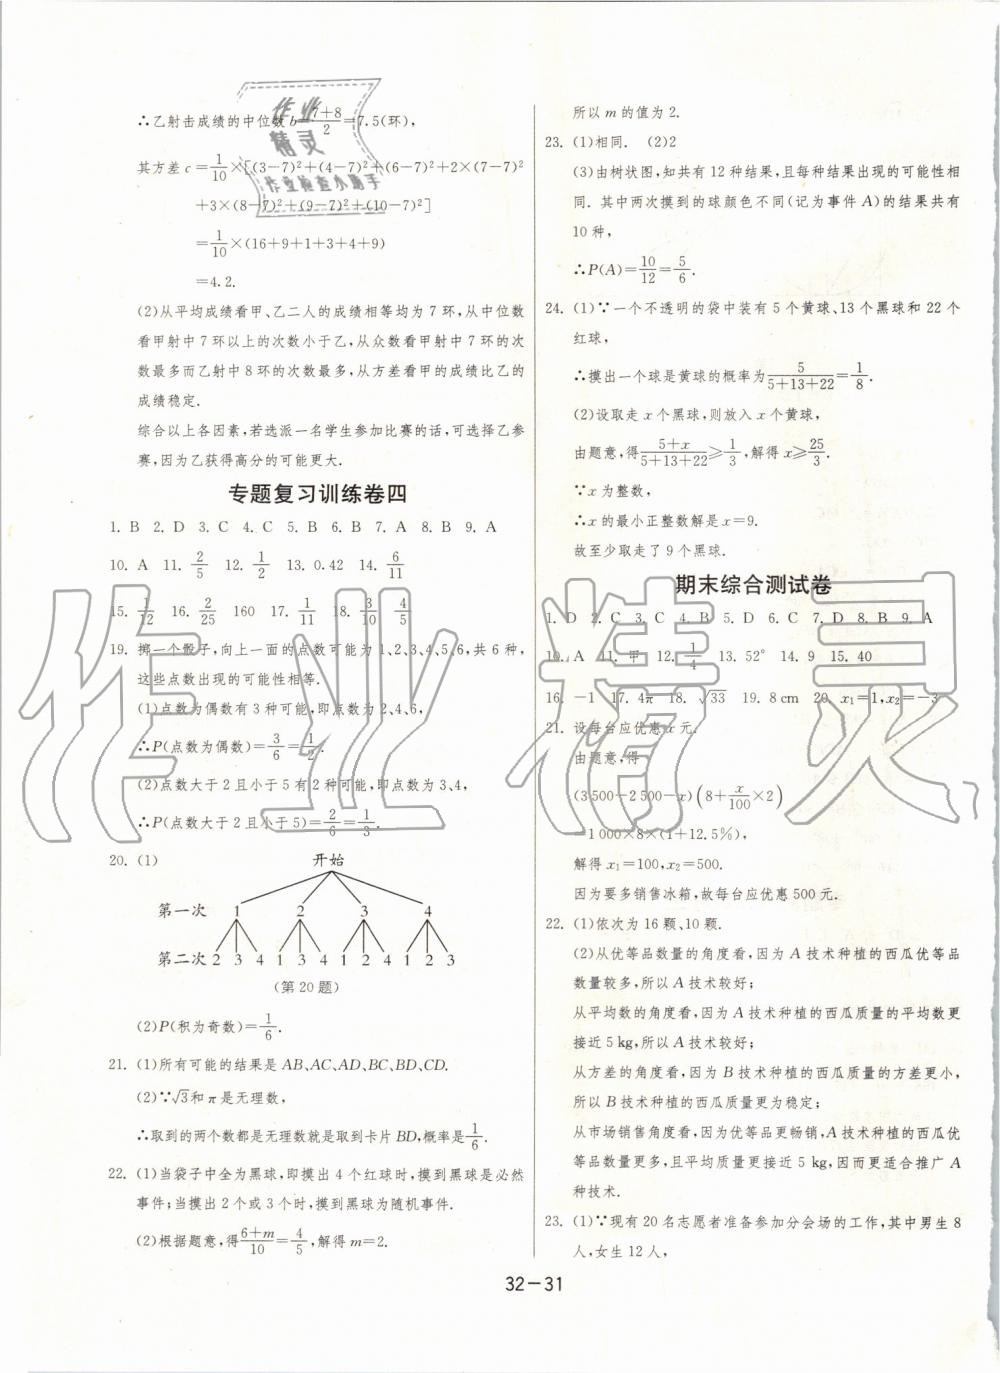 ∴乙射击成绩的中位数b=(7+8)/2=7.5(环),
其方差c=1/10×[(3-7)²+(4-7)²+(6-7)²+2×(7-7)²
+3×(8-7)²+(9-7)²+(10-7)²]
=1/10×(16+9+1+3+4+9)
=4.2.
(2)从平均成绩看甲、乙二人的成绩相等均为7环,从中位数
看甲射中7环以上的次数小于乙,从众数看甲射中7环的次
数最多而乙射中8环的次数最多,从方差看甲的成绩比乙的
成绩稳定.
综合以上各因素,若选派一名学生参加比赛的话,可选择乙参
赛,因为乙获得高分的可能更大.
专题复习训练卷四
1. B 2. D 3. C 4. C 5. B 6. B 7. A 8. B 9. A
10. A 11. 2/5 12. 1/2 13. 0.42 14. 6/11
15. 1/12 16. 2/25 160 17. 1/11 18. 3/10 4/5
19. 掷一个骰子,向上一面的点数可能为1、2、3、4、5、6,共6种,
这些点数出现的可能性相等.
(1)点数为偶数有3种可能,即点数为2、4、6,
∴P(点数为偶数)=3/6=1/2.
(2)点数大于2且小于5有2种可能,即点数为3、4,
∴P(点数大于2且小于5)=2/6=1/3.
20. (1)
开始
第一次 1 2 3 4
第二次 2 3 4 1 3 4 1 2 4 1 2 3
(第20题)
(2)P(积为奇数)=1/6.
21. (1)所有可能的结果是AB、AC、AD、BC、BD、CD.
(2)∵√3和π是无理数,
∴取到的两个数都是无理数就是取到卡片BD,概率是1/6.
22. (1)当袋子中全为黑球,即摸出4个红球时,摸到黑球是必然
事件;当摸出2个或3个时,摸到黑球为随机事件.
(2)根据题意,得(6+m)/10=4/5,解得m=2.
所以m的值为2.
23. (1)相同. (2)2
(3)由树状图,知共有12种结果,且每种结果出现的可能性相
同. 其中两次摸到的球颜色不同(记为事件A)的结果共有
10种,
∴P(A)=10/12=5/6.
24. (1)∵一个不透明的袋中装有5个黄球、13个黑球和22个
红球,
∴摸出一个球是黄球的概率为5/(5+13+22)=1/8.
(2)设取走x个黑球,则放入x个黄球,
由题意,得(5+x)/(5+13+22)≥1/3,解得x≥25/3.
∵x为整数,
∴x的最小正整数解是x=9.
故至少取走了9个黑球.
期末综合测试卷
1. D 2. C 3. C 4. B 5. D 6. C 7. D 8. B 9. A
10. A 11. 甲 12. 1/4 13. 52° 14. 9 15. 40
16. -1 17. 4π 18. √33 19. 8 cm 20. x₁=1,x₂=-3
21. 设每台应优惠x元.
由题意,得
(3 500-2 500-x)(8+x/100×2)
1 000×8×(1+12.5%),
解得x₁=100,x₂=500.
因为要多销售冰箱,故每台应优惠500元.
22. (1)依次为16颗、10颗.
(2)从优等品数量的角度看,因为A技术种植的西瓜优等品
数量较多,所以A技术较好;
从平均数的角度看,因为A技术种植的西瓜质量的平均数更
接近5 kg,所以A技术较好;
从方差的角度看,因为B技术种植的西瓜质量的方差更小,
所以B技术种植的西瓜质量更为稳定;
从市场销售角度看,因为优等品更畅销,A技术种植的西瓜优
等品数量更多,且平均质量更接近5 kg,因而更适合推广A
种技术.
23. (1)∵现有20名志愿者准备参加分会场的工作,其中男生8
人,女生12人,
32-31
作业
精灵
作业检查小助手
作业精灵